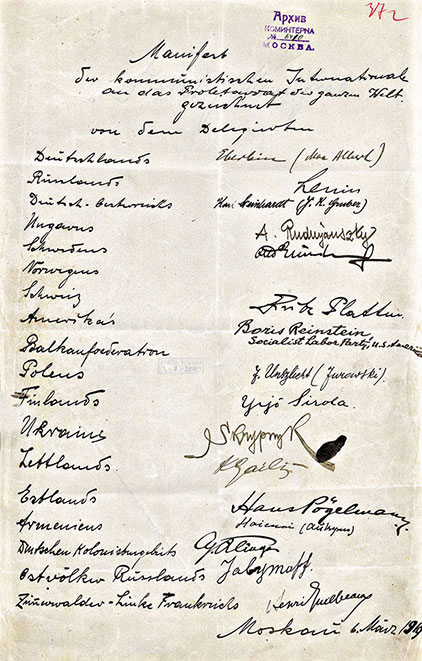 Архив
КОМИНТЕРНА
№
МОСКВА.
Manifest
der kommunistischen Internationale
an das Proletariat der ganzen Welt.
gezeichnet
von den Delegierten
Deutschlands Eberlein (Max Albert)
Russlands Lenin
Deutsch-Oesterreichs Karl Steinhardt (J. K. Gruber)
Ungarns A. Rudnjanszky
Schwedens Otto Grimlund
Norwegens
Schweiz Fritz Platten
Amerikas Boris Reinstein
Socialist Labor Party, U.S. America
Balkanfoederation
Polens J. Unszlicht (Jurowski)
Finlands Yrjö Sirola.
Ukraine Skrypnyk
Lettlands. K Gailis
Estlands Hans Pögelmann
Armeniens Haikuni
Deutschen Kolonistengebiets G Klinger
Ostvölker Russlands Jalymoff.
Zimmwalder-Linke Frankreichs Henri Guilbeaux
Moskau 6. März 1919